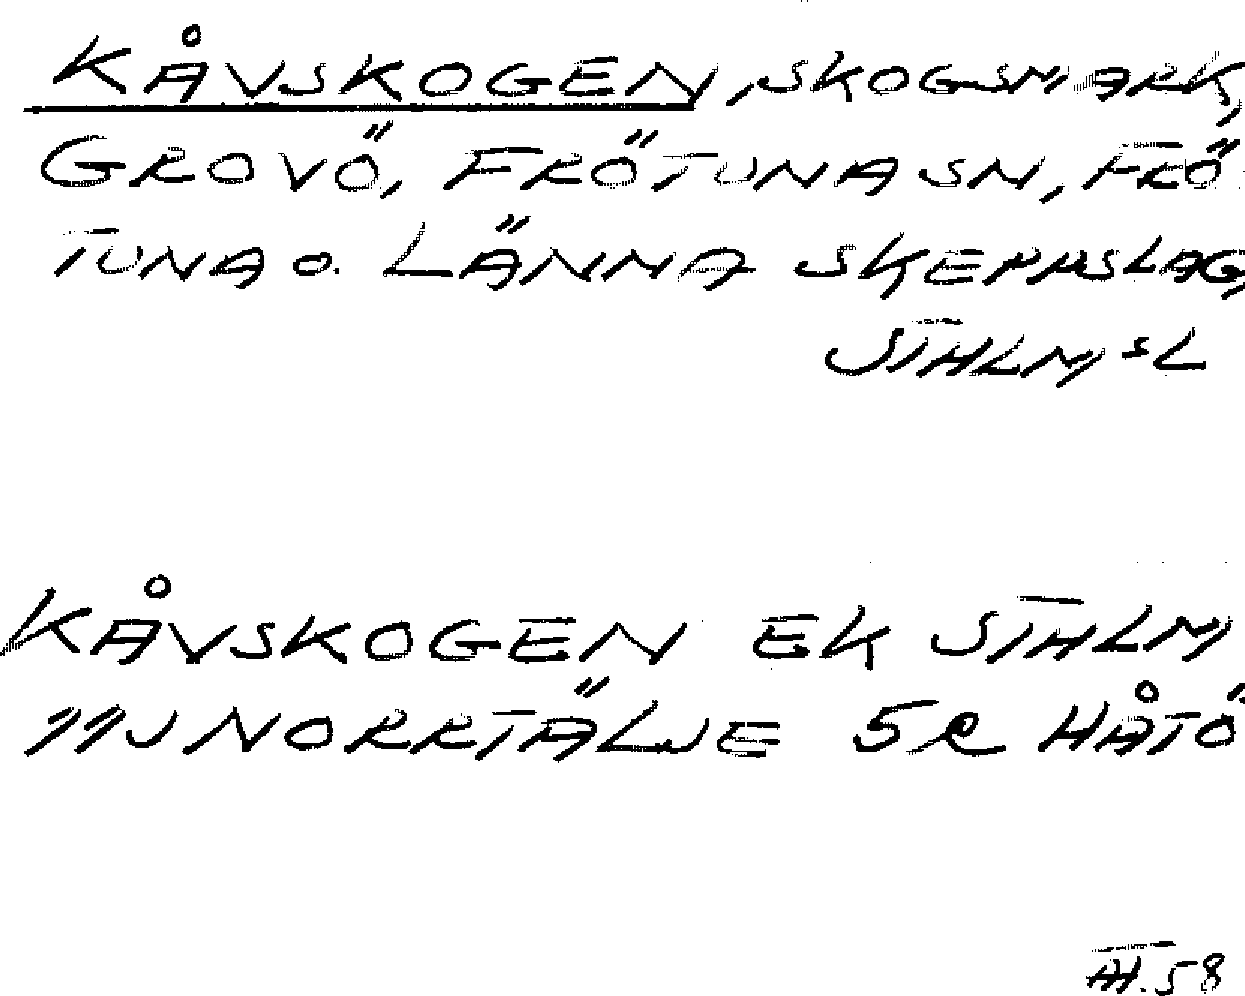 KÅVSKOGEN, SKOGSMARK,
GROVÖ, FRÖTUNA SN, FRÖ-
TUNA O. LÄNNA SKEPPSLAG,
STHLMS L
KÅVSKOGEN EK STHLM
11J NORRTÄLJE 5R HÅTÖ
58